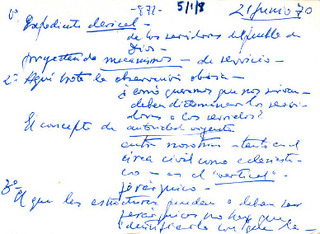 1º -872- 5/1/8 21 junio 70
Expediente clerical -
de los servidores del pueble de
Dios -
proyección de mecanismos - de servicio -
2º Aquí brota la observación obvia -
¿cómo queremos que nos sirvan -
deben dictaminar los servi-
dores o los servidos?
El concepto de autoridad vigente
entre nosotros - tanto en el
área civil como eclesiásti-
co - es el "vertical" -
jerárquico -
3º
El que las estructuras puedan o deban ser
jerárquicos no hay que
identificarlo con que la -